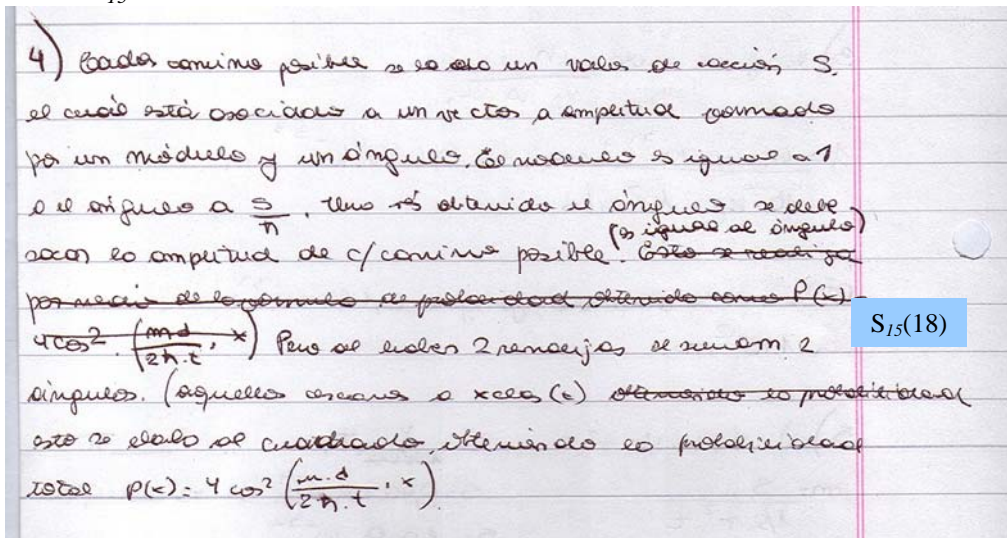 4) Cada camino posible se le da un valor de acción S.
el cuál está asociado a un vector amplitud formado
por un módulo y un ángulo. El módulo es igual a 1
o el ángulo a S/ħ. Una vez obtenido el ángulo se debe
(es igual al ángulo)
sacar la amplitud de c/camino posible. Esto se realiza
por medio de la fórmula de probabilidad obtenida como P(x)=
4cos² (m d / 2ħ.t . x) Pero al haber 2 rendijas se suman 2
ángulos. (aquellos cercanos a xclas(t) obteniendo la probabilidad
esto se eleva al cuadrado obteniendo la probabilidad
total P(x)= 4 cos² (m.d / 2ħ.t . x).
S15(18)